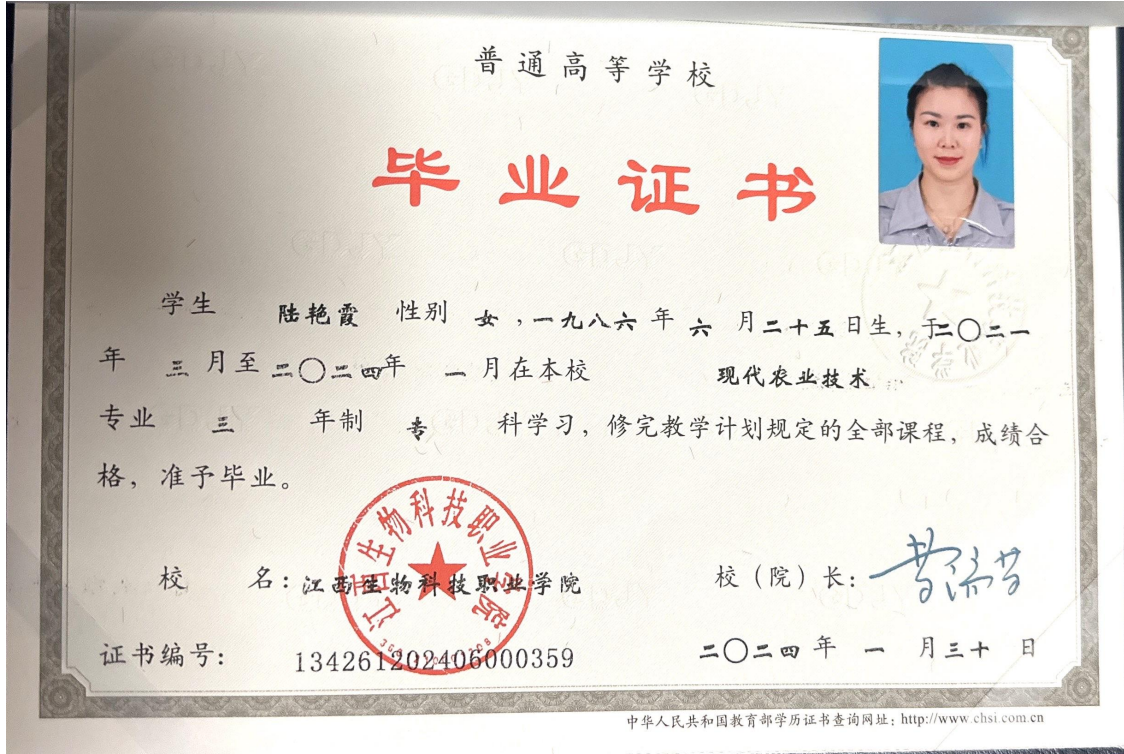 普通高等学校
毕业证书
学生 陆艳霞 性别 女，一九八六年 六 月二十五日生，于二〇二一
年 三 月至二〇二四年 一 月在本校 现代农业技术
专业 三 年制 专 科学习，修完教学计划规定的全部课程，成绩合
格，准予毕业。
江西生物科技职业学院
校 名：江西生物科技职业学院 校（院）长：
证书编号： 134261202406000359 二〇二四 年 一 月三十 日
中华人民共和国教育部学历证书查询网址：http://www.chsi.com.cn